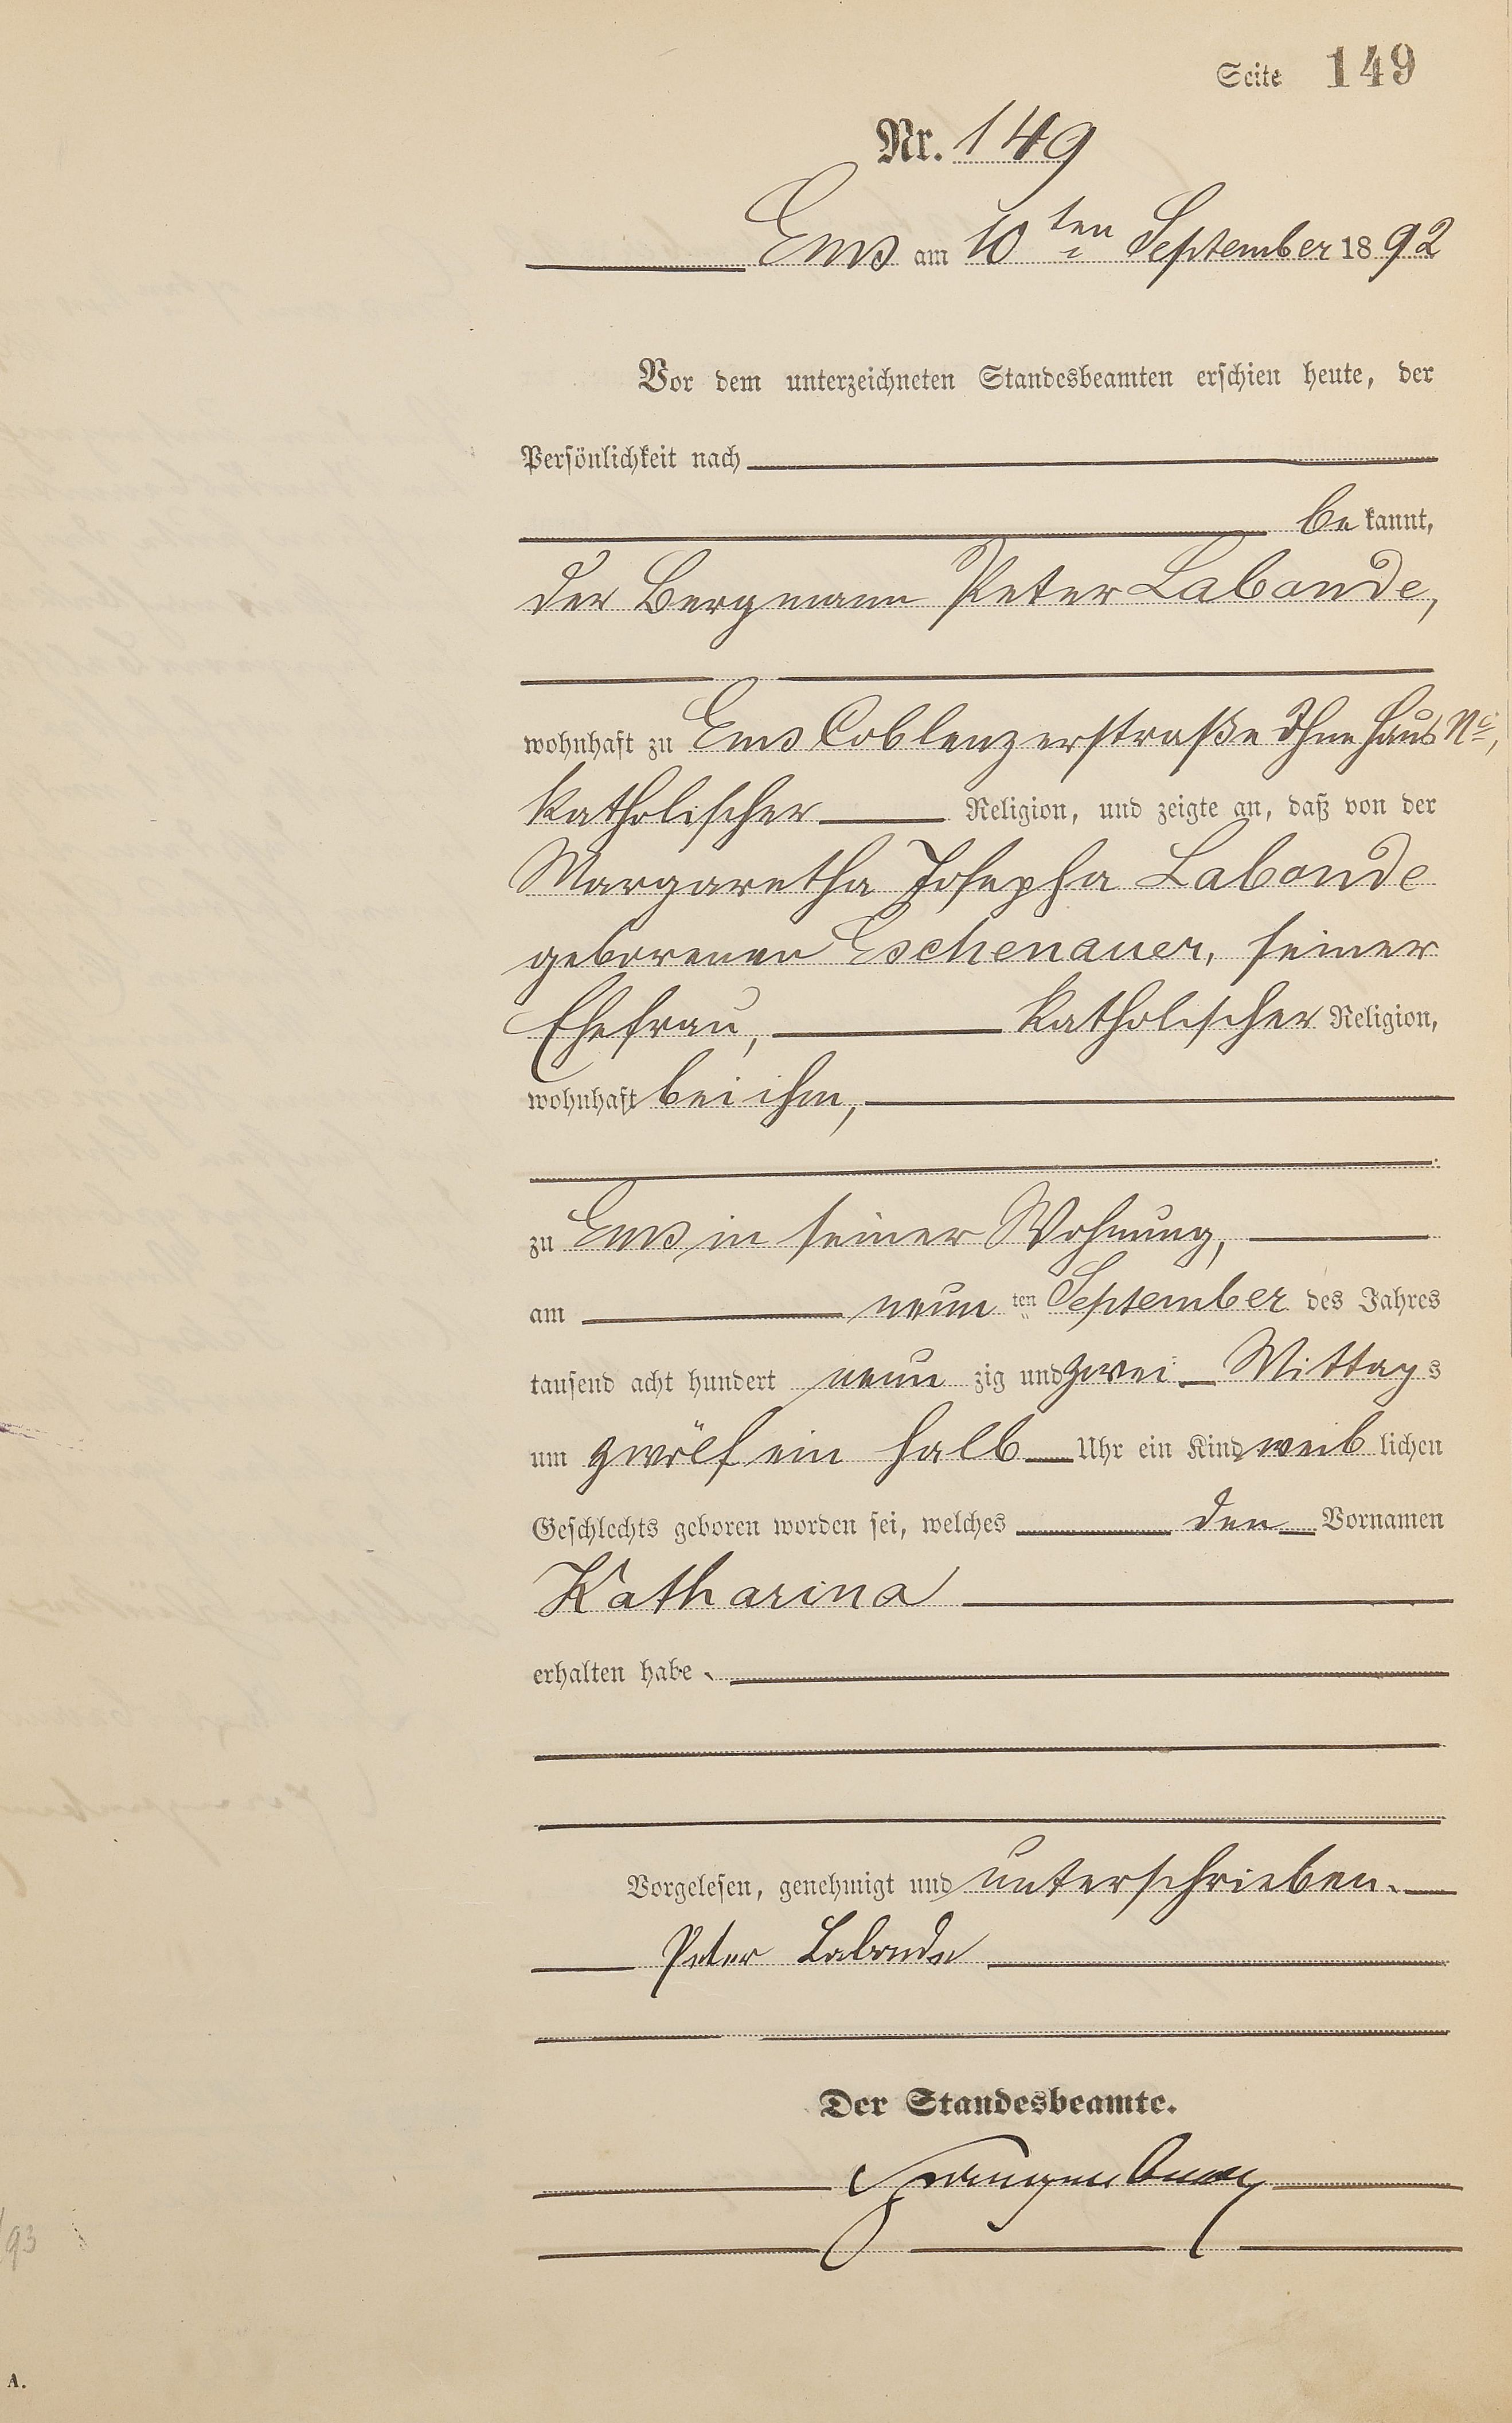 Seite 149
Nr. 149
Ems am 10ten September 1892
Vor dem unterzeichneten Standesbeamten erschien heute, der
Persönlichkeit nach
be kannt,
der Bergmann Peter Labonde,
wohnhaft zu Ems Coblenzerstraße Ohne Haus No,
katholischer Religion, und zeigte an, daß von der
Margaretha Josepha Labonde
geborenen Eschenauer, seiner
Ehefrau, katholischer Religion,
wohnhaft bei ihm,
zu Ems in seiner Wohnung,
am neun ten September des Jahres
tausend acht hundert neun zig und zwei Mittags
um zwölf ein halb Uhr ein Kind weib lichen
Geschlechts geboren worden sei, welches den Vornamen
Katharina
erhalten habe.
Vorgelesen, genehmigt und unterschrieben.
Peter Labonde
Der Standesbeamte.
/93
A.